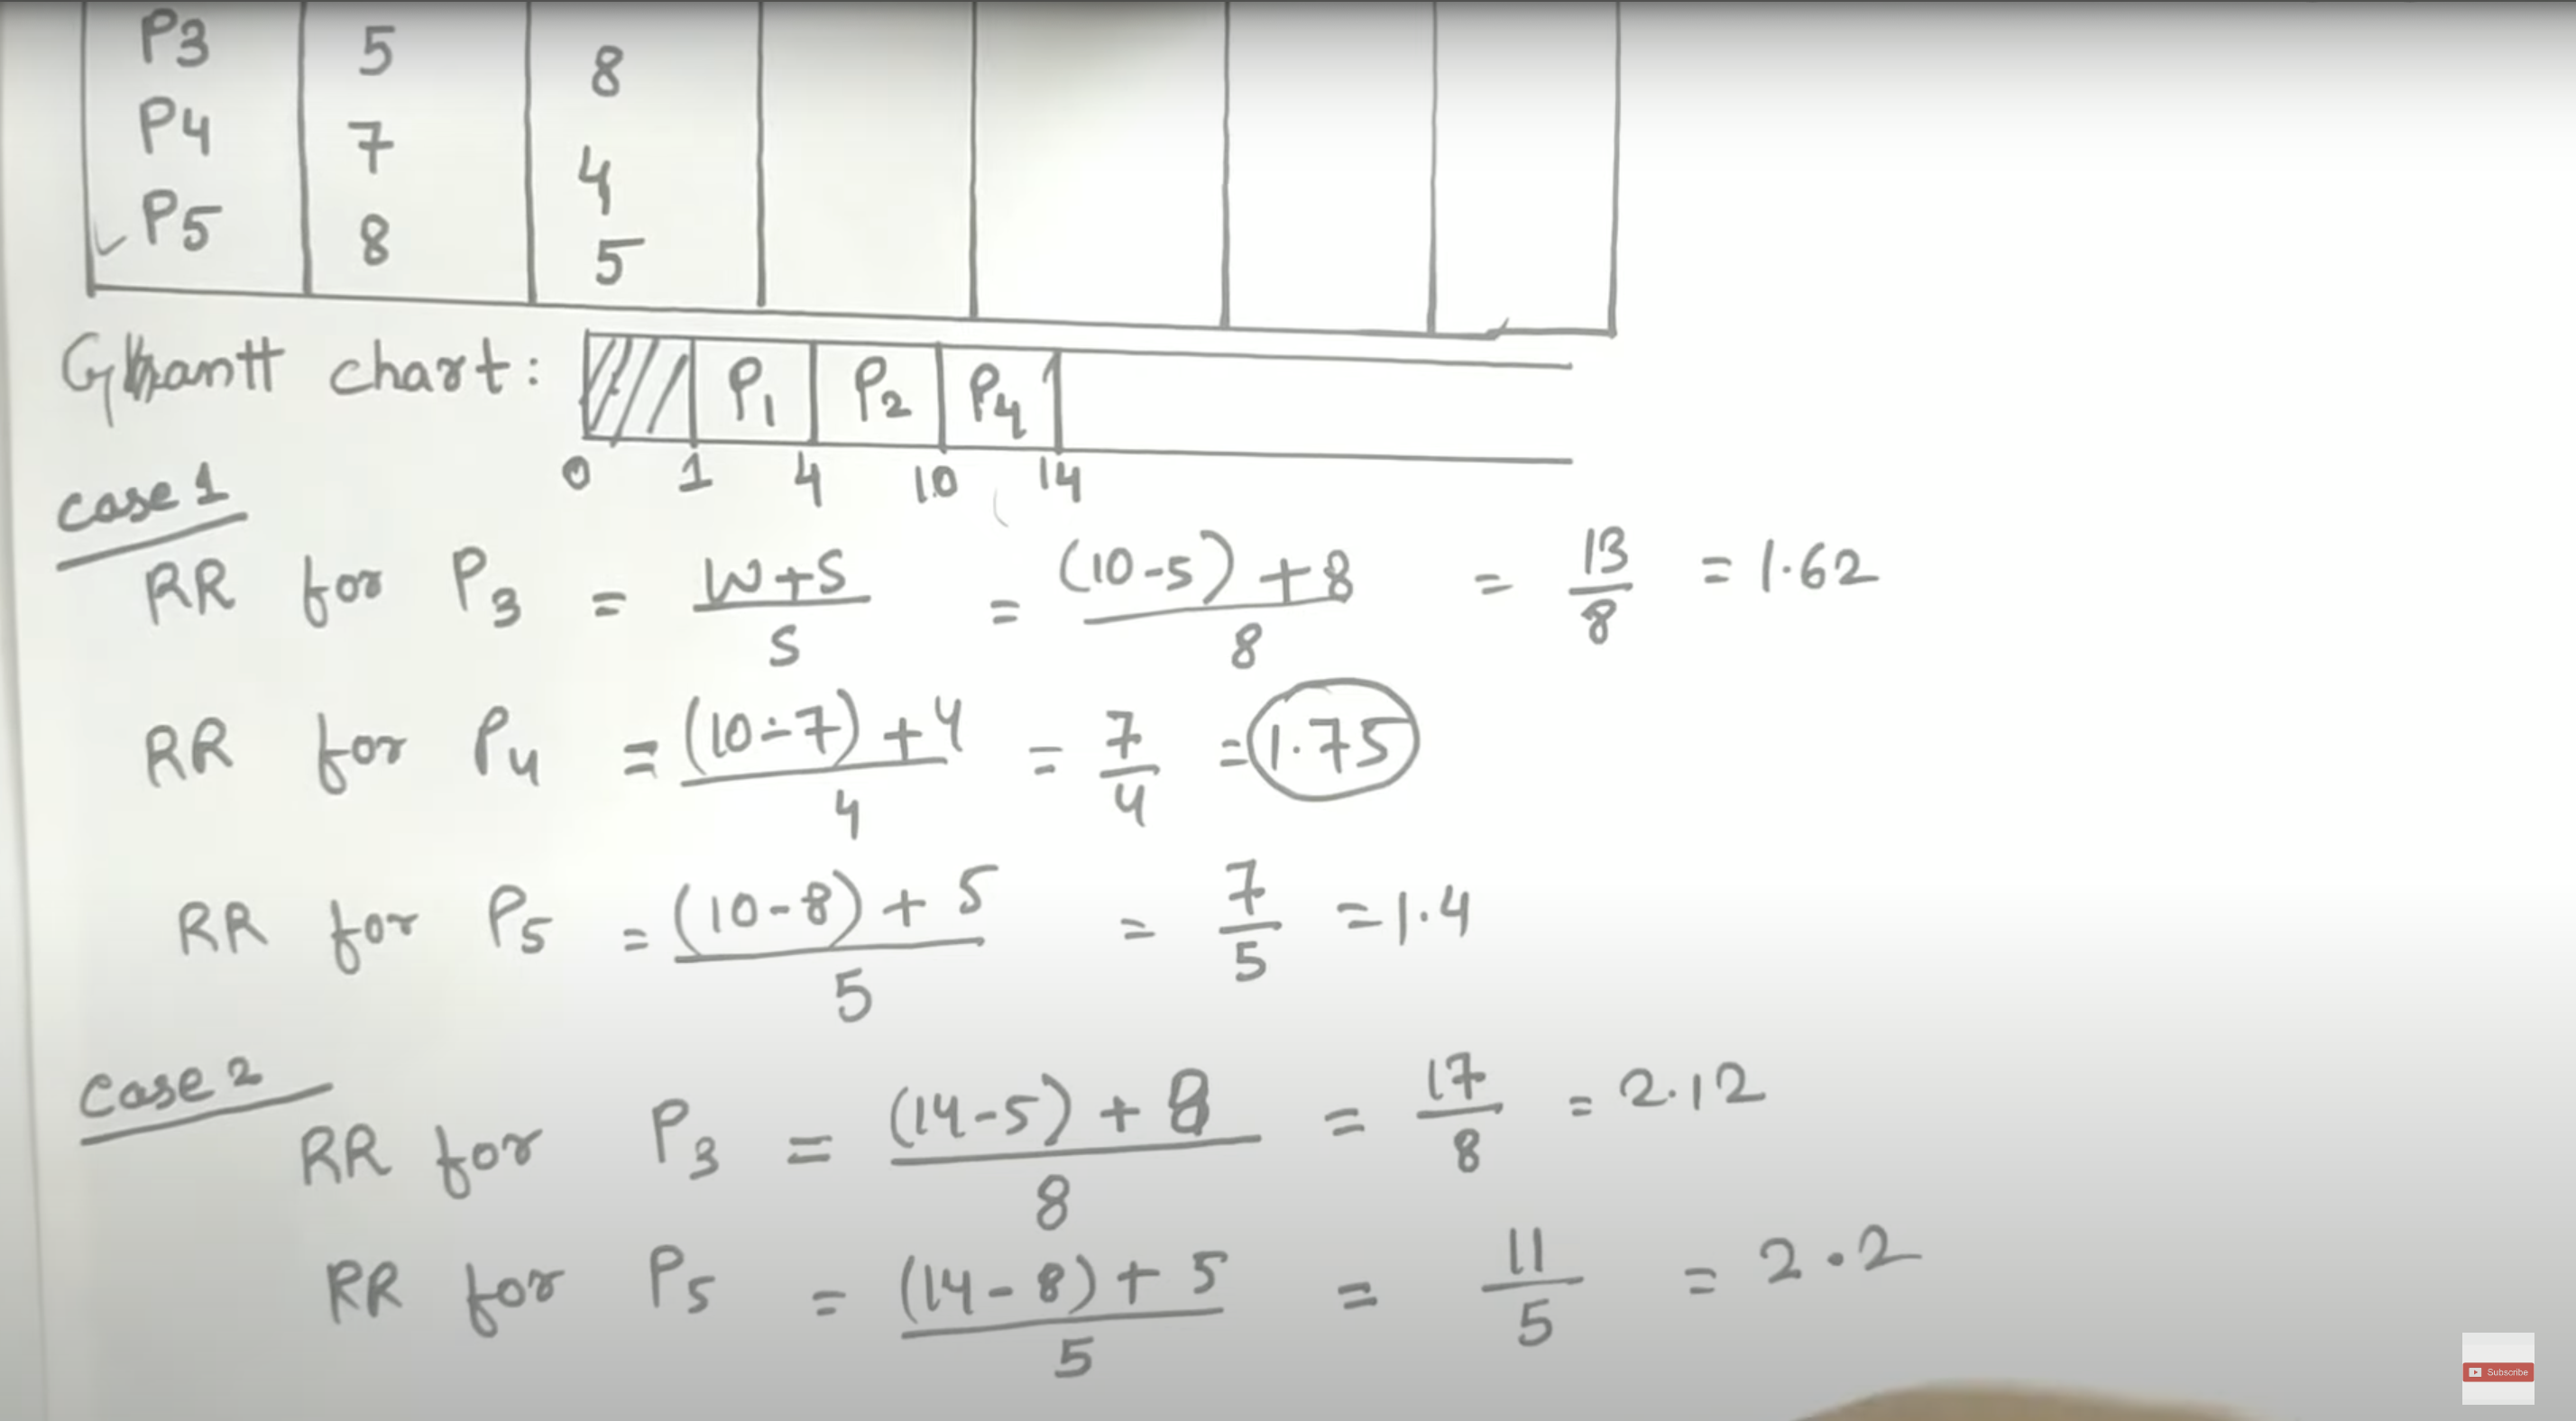 P3 5 8
P4 7 4
P5 8 5
Gantt chart: P1 P2 P4
0 1 4 10 14
Case 1
RR for P3 = W+S/S = (10-5)+8/8 = 13/8 = 1.62
RR for P4 = (10-7)+4/4 = 7/4 = 1.75
RR for P5 = (10-8)+5/5 = 7/5 = 1.4
Case 2
RR for P3 = (14-5)+8/8 = 17/8 = 2.12
RR for P5 = (14-8)+5/5 = 11/5 = 2.2
Subscribe